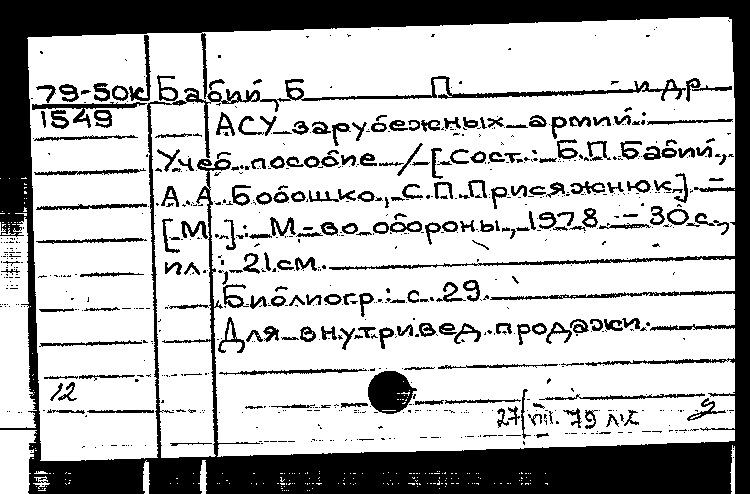 79-50к Бабий, Б. П. и др.
1549 АСУ зарубежных армий:
Учеб. пособие / [Сост.: Б.П. Бабий,
А.А. Бобошко, С.П. Присяжнюк]. –
[М.]: М-во обороны, 1978. – 30 с.,
ил.; 21 см.
Библиогр.: с. 29.
Для внутривед. продажи.
12
27/VIII. 79